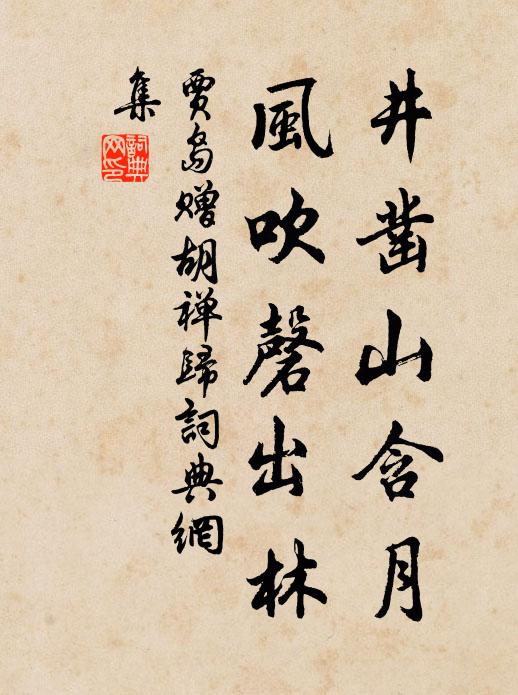 井鑿山含月
風吹磬出林
賈島贈胡禅歸詞典網
集
詞典
网印